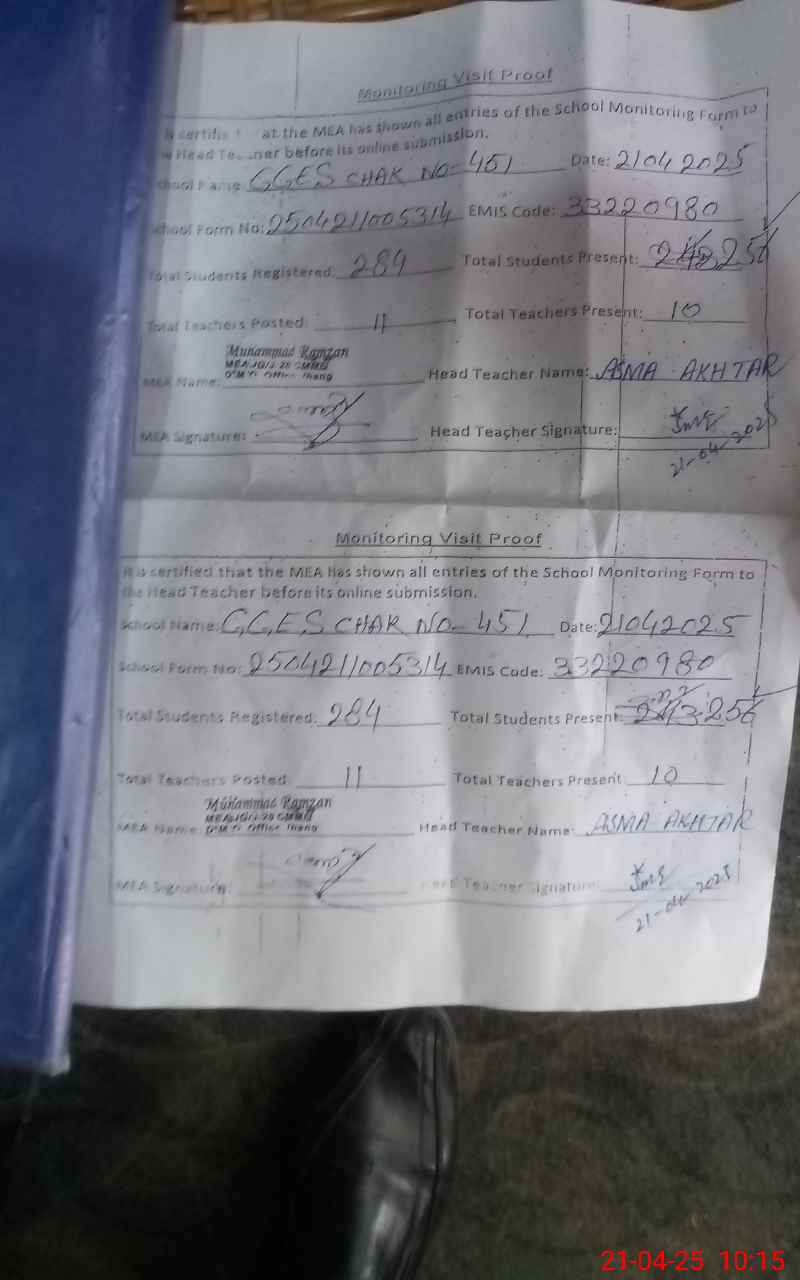 Monitoring Visit Proof
at the MEA has shown all entries of the School Monitoring Form to
Head Teacher before its online submission.
School Name: GGES CHAK NO- 451 Date: 21042025
School Form No: 2504211005314 EMIS Code: 33220980
Total Students Registered: 284 Total Students Present: 256
Total Teachers Posted: 11 Total Teachers Present: 10
Muhammad Ramzan
MEA Name: Head Teacher Name: ASMA AKHTAR
MEA Signature: Head Teacher Signature:
21-04-2025
Monitoring Visit Proof
It is certified that the MEA has shown all entries of the School Monitoring Form to
the Head Teacher before its online submission.
School Name: GGES CHAK NO- 451 Date: 21042025
School Form No: 2504211005314 EMIS Code: 33220980
Total Students Registered: 284 Total Students Present: 256
Total Teachers Posted: 11 Total Teachers Present: 10
Muhammad Ramzan
MEA Name: Head Teacher Name: ASMA AKHTAR
MEA Signature: Teacher Signature:
21-04-2025
21-04-25 10:15